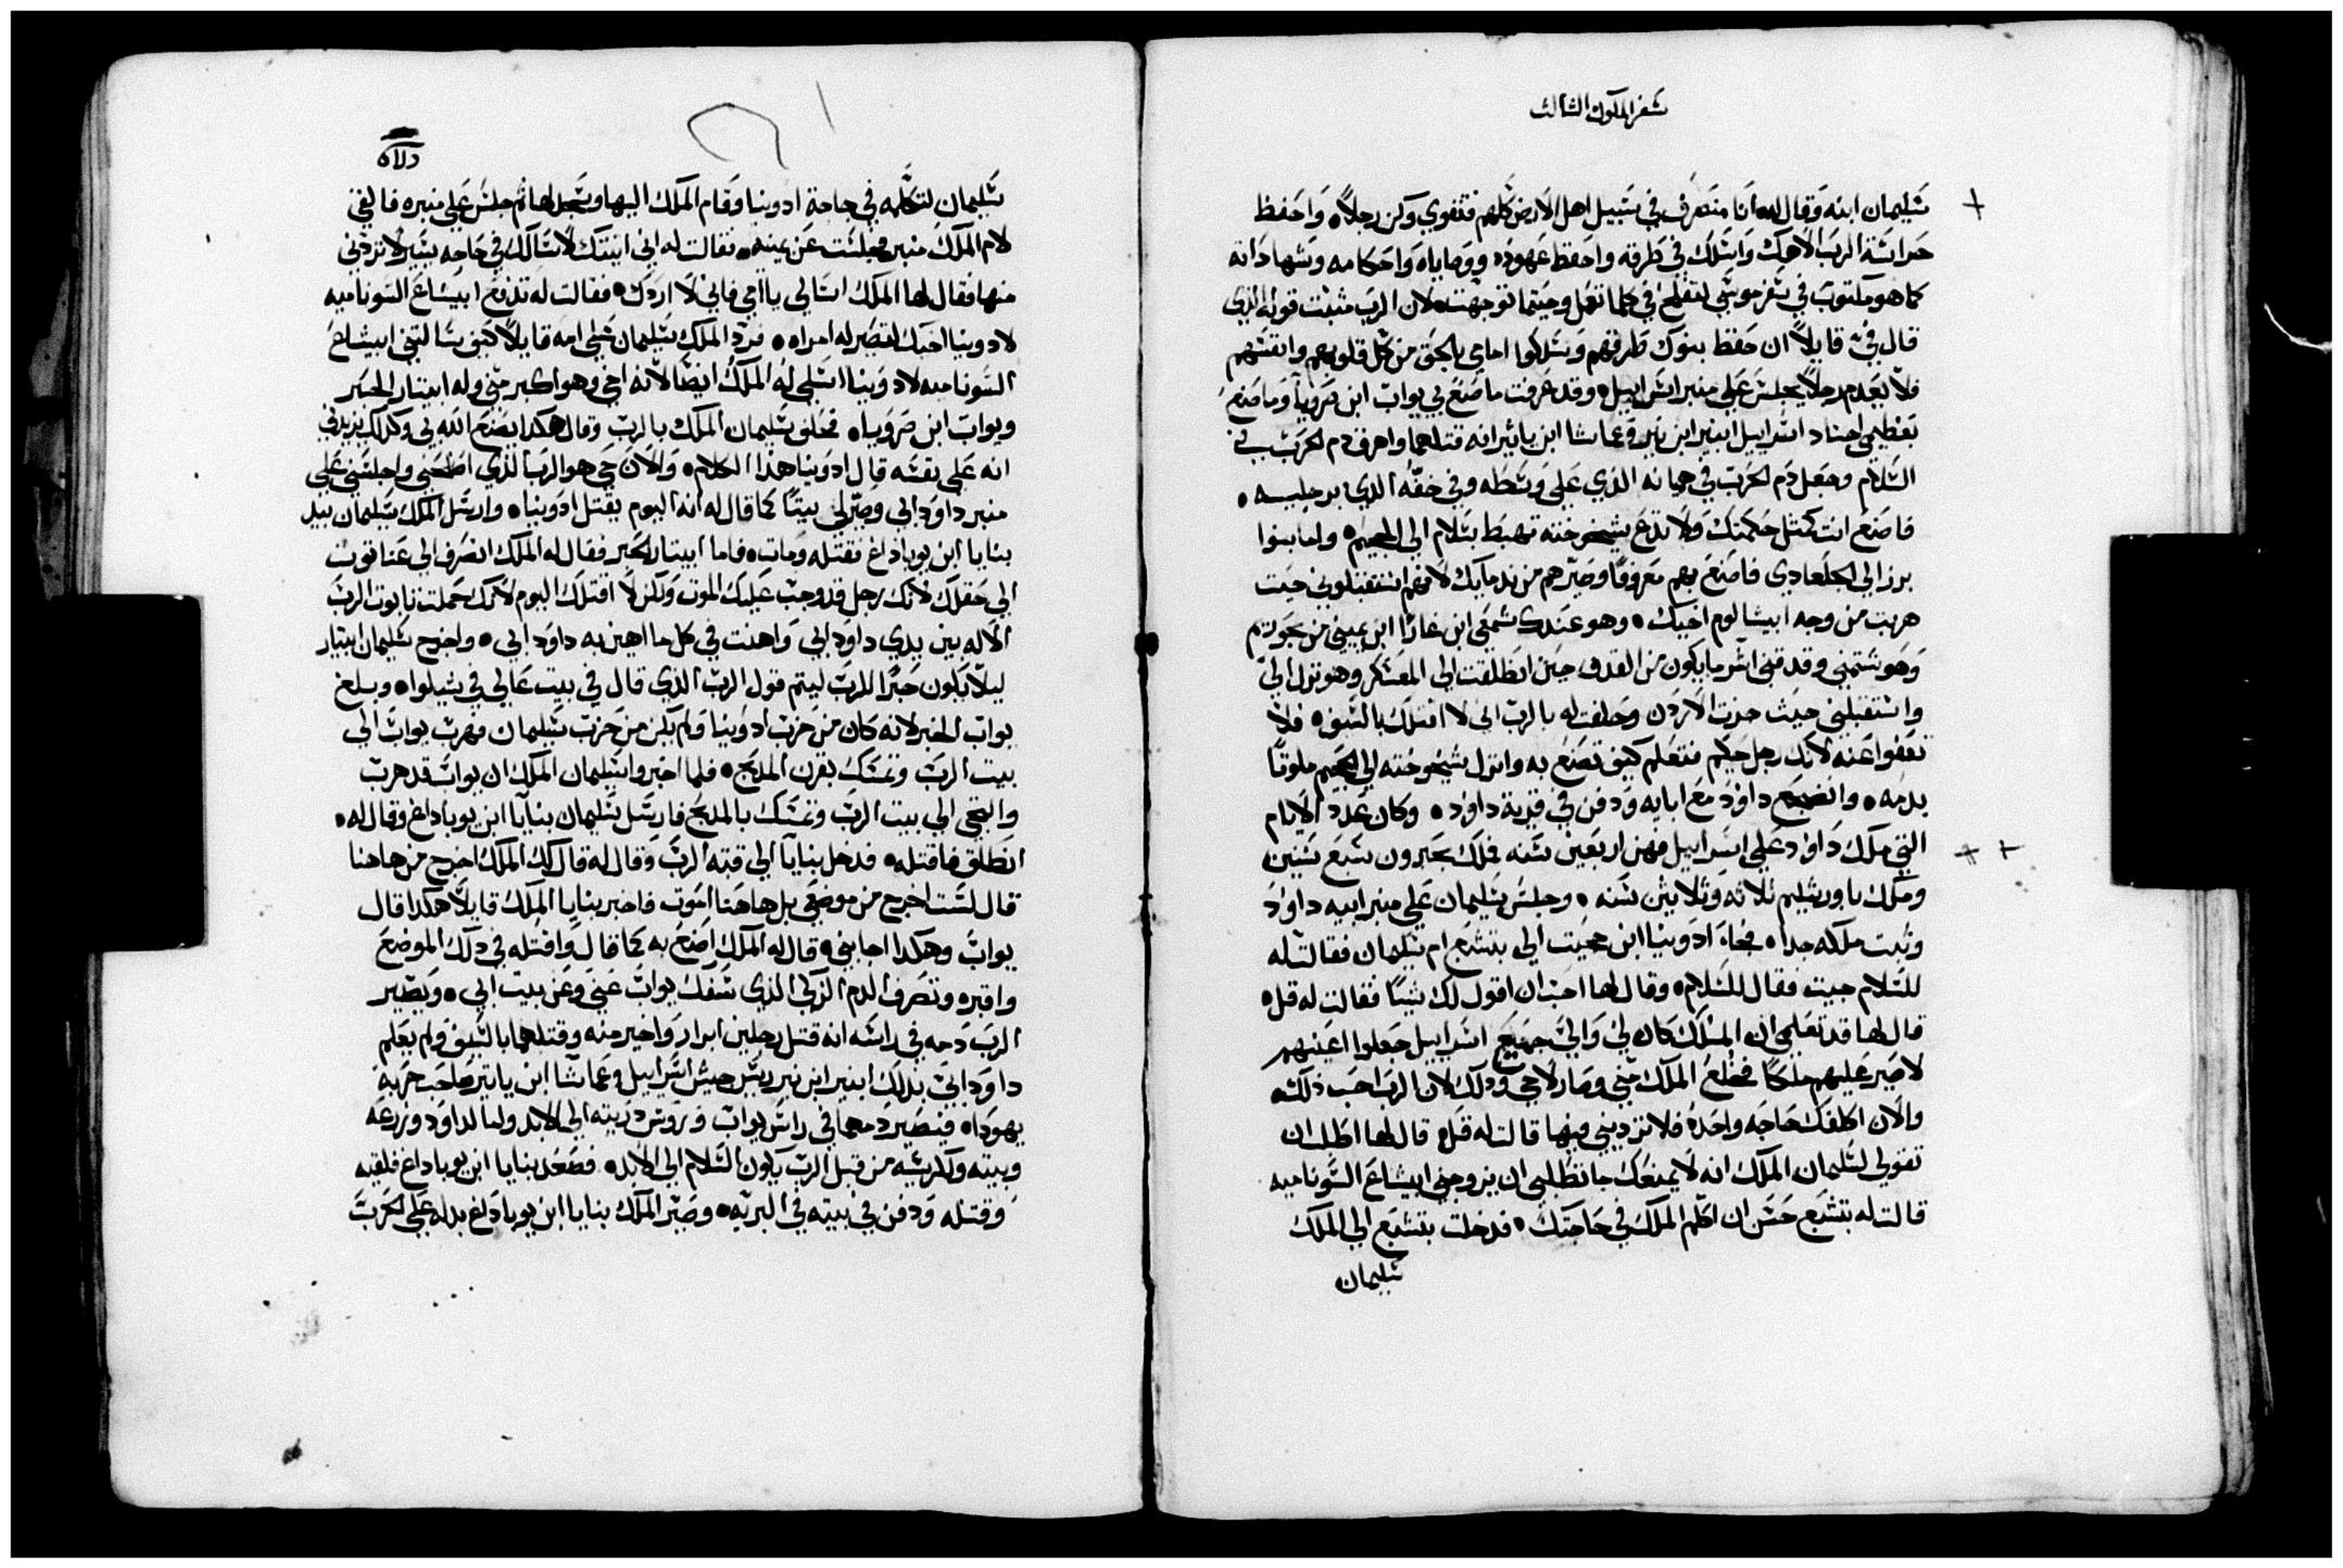 سفر الملوك الثالث
سليمان ابنه وقال له انا منصرف في سبيل اهل الارض كلهم فتقوي وكن رجلاً واحفظ
حراسة الرب الاهك واسلك في طرقه واحفظ عهوده ووصاياه واحكامه وشهاداته
كما هو مكتوب في سفر موسي لتفلح في كلما تعمل وحيثما توجهت لان الرب مثبت قوله الذي
قال فيّ قايلاً ان حفظ بنوك طرقهم وسلكوا امامي بالحق من كل قلوبهم وانفسهم
فلا يعدم رجلاً يجلس علي منبر اسراييل وقد عرفت ما صنع بي يواب ابن صرويا وما صنع
بعظيمي اجناد اسراييل ابنير ابن نير وعماسا ابن ياثر انه قتلهما واهرق دم الحرب في
السلام وجعل دم الحرب في هميانه الذي علي وسطه وفي خفه الذي برجليه
فاصنع انت كمثل حكمتك ولا تدع شيخوخته تهبط بسلام الي الجحيم واما بنوا
برزالي الجلعادي فاصنع بهم معروفًا وصيرهم من ندمايك لانهم استقبلوني حيث
هربت من وجه ابيشالوم اخيك وهو عندك شمعي ابن غارا ابن يميني من بحوريم
وهو شتمني وقدفني اشر ما يكون من القدف حين انطلقت الي المعسكر وهو نزل الي
واستقبلني حيث جزت الاردن وحلفت له بالرب اني لا اقتلك بالسيف فلا
تعفوا عنه لانك رجل حكيم فتعلم كيف تصنع به وانزل شيخوخته الي الجحيم ملوثًا
بدمه وانضجع داوود مع ابايه ودفن في قرية داوود وكان عدد الايام
التي ملك داوود علي اسراييل فهن اربعين سنه فملك بحبرون سبع سنين
وملك باورشليم ثلاثه وثلاثين سنه وجلس سليمان علي منبر ابيه داوود
وثبت ملكه جداً فجاء ادونيا ابن حجيت الي بتشبع ام سليمان فقالت له
للسلام جيت فقال للسلام وقال لها احب ان اقول لك شيًا فقالت له قل
قال لها قد تعلمي ان الملك كان لي والي جميع اسراييل جعلوا اعينهم
لاصير عليهم ملكًا فخلع الملك مني وصار لاخي وذلك لان الرب احب ذلك
والان اكلفك حاجه واحده فلا ترديني فيها قالت له قل قال لها اطلب ان
تقولي لسليمان الملك انه لا يمنعك ما تطلبي ان يزوجني ابيشاع السونامية
قالت له بتشبع حسن ان اكلم الملك في حاجتك فدخلت بتشبع الي الملك
سليمان
سليمان لتكلمه في حاجة ادونيا وقام الملك اليها وسجد لها ثم جلس علي منبره فالقي
لام الملك منبر فجلست عن يمينه فقالت له اني اتيتك لاسالك في حاجه يسير لا تردني
منها فقال لها الملك اسالي يا امي فاني لا اردك فقالت له تدفع ابيشاع السوناميه
لادونيا اخيك لتصير له امراه فرد الملك سليمان علي امه قايلاً كيف سالتي ابيشاع
السوناميه لادونيا اسلي له الملك ايضًا لانه اخي وهو اكبر مني وله ابيتار الحبر
ويواب ابن صرويا فحلف سليمان الملك بالرب وقال هكدا يصنع الله بي وكدلك يزيدني
انه علي نفسه قال ادونيا هذا الكلام والان حي هو الرب الذي اصلحني واجلسني علي
منبر داود ابي وصير لي بيتًا كما قال له انه اليوم يقتل ادونيا وارسل الملك سليمان بيد
بنايا ابن يوياداع فقتله ومات فاما ابيتار الحبر فقال له الملك انصرف الي عناتوت
الي حقلك لانك رجل قد وجب عليك الموت ولكن لا اقتلك اليوم لانك حملت تابوت الرب
الاله بين يدي داود ابي واهنت في كل ما اهين به داود ابي واخرج سليمان ابيتار
ليلا يكون حبرًا للرب ليتم قول الرب الذي قال في بيت عالي في شيلوا وبلغ
يواب الخبر لانه كان من حزب ادونيا ولم يكن من حزب سليمان فهرب يواب الي
بيت الرب وتمسك بقرن المدبح فلما اخبروا سليمان الملك ان يواب قد هرب
والتجي الي بيت الرب وتمسك بالمدبح فارسل سليمان بنايا ابن يوياداع وقال له
انطلق فاقتله فدخل بنايا الي قبة الرب وقال له قال لك الملك اخرج من هاهنا
قال لست اخرج من موضعي بل هاهنا اموت فاخبر بنايا الملك قايلاً هكدا قال
يواب وهكدا اجابني قال له الملك اصنع به كما قال واقتله في دلك الموضع
واقبره وتصرف الدم الزكي الذي سفك يواب عني وعن بيت ابي ويصير
الرب دمه في راسه انه قتل رجلين ابرار واخير منه وقتلهما بالسيف ولم يعلم
داود ابي بدلك ابنير ابن نير ريس جيش اسراييل وعماسا ابن ياثير صاحب حربة
يهودا فيصير دمهما في راس يواب وروس دريته الي الابد واما لداود وزرعه
وبيته وكرسيه من قبل الرب يكون السلام الي الابد فصعد بنايا ابن يوياداع فلقيه
وقتله ودفن في بيته في البريه وصير الملك بنايا ابن يوياداع بدله علي الحرب